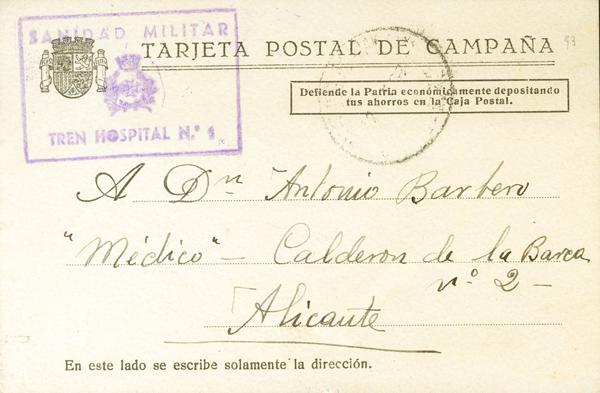 SANIDAD MILITAR
TREN HOSPITAL N.º 1
TARJETA POSTAL DE CAMPAÑA
93
Defiende la Patria económicamente depositando
tus ahorros en la Caja Postal.
A Dn Antonio Barbero
"Médico" - Calderon de la Barca
nº 2 -
Alicante
En este lado se escribe solamente la dirección.